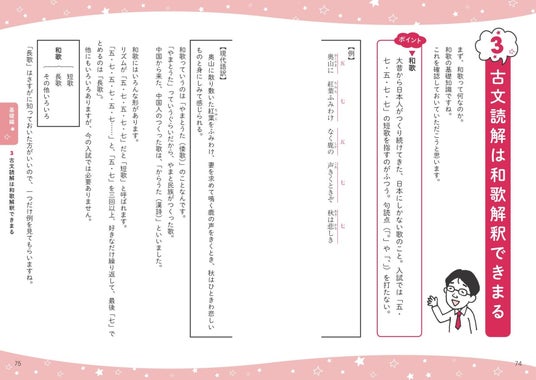 3
古文読解は和歌解釈できまる
まず、和歌って何なのか。
和歌の基礎知識ですね。
これを確認しておいていただこうと思います。
ポイント
▼和歌
大昔から日本人がつくり続けてきた、日本にしかない歌のこと。入試では「五・
七・五・七・七」の短歌を指すのがふつう。句読点（「。」や「、」）を打たない。
【例】
五 七 五 七 七
奥山に 紅葉ふみわけ なく鹿の 声きくときぞ 秋は悲しき
【現代語訳】
奥山に散り敷いた紅葉をふみわけ、妻を求めて鳴く鹿の声をきくとき、秋はひときわ悲しい
ものと身にしみて感じられる。
和歌っていうのは「やまとうた（倭歌）」のことなんです。
「やまとうた」っていうぐらいだから、やまと民族がつくった歌。
中国から来た、中国人のつくった歌は、「からうた（漢詩）」といいました。
和歌にはいろんな形があります。
リズムが「五・七・五・七・七」だと「短歌」と呼ばれます。
「五・七・五・七・五・七……」と、「五・七」を三回以上、好きなだけ繰り返して、最後「七」で
とめるのは「長歌」。
他にもいろいろありますが、今の入試では必要ありません。
和歌
短歌
長歌
その他いろいろ
「長歌」はさすがに知っておいた方がいいので、一つだけ例を見てもらいますね。
基礎編
3 古文読解は和歌解釈できまる
74
75